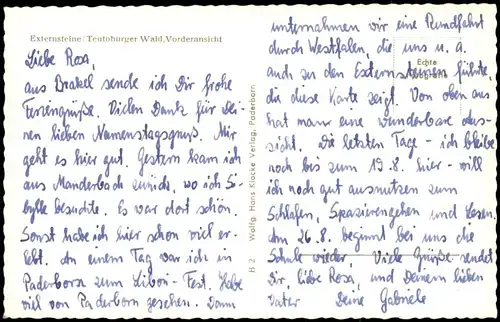 Externsteine/Teutoburger Wald, Vorderansicht
Liebe Rosa,
aus Brakel sende ich Dir frohe
Feriengrüße. Vielen Dank für Dei-
nen lieben Namenstagsgruß. Mir
geht es hier gut. Gestern kam ich
aus Manderbach zurück, wo ich Si-
bylle besuchte. Es war dort schön.
Sonst habe ich hier schon viel er-
lebt. An einem Tag war ich in
Paderborn zum Libori-Fest. Habe
viel von Paderborn gesehen. Dann
B 2 Wolfg. Hans Klocke Verlag, Paderborn
Echte
unternahmen wir eine Rundfahrt
durch Westfalen, die uns u. a.
auch zu den Externsteinen führte
die diese Karte zeigt. Von oben aus
hat man eine wunderbare Aus-
sicht. Die letzten Tage - ich bleibe
noch bis zum 19.8. hier - will
ich noch gut ausnutzen zum
Schlafen, Spazierengehen und Lesen.
Am 26.8. beginnt bei uns die
Schule wieder. Viele Grüße sendet
Dir, liebe Rosa, und Deinem lieben
Vater Deine Gabriele